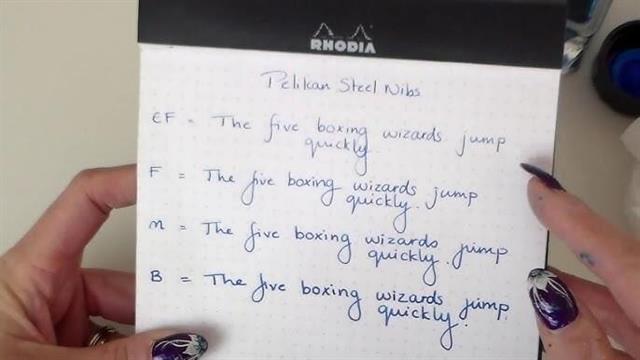 RHODIA
Pelikan Steel Nibs
EF = The five boxing wizards jump
quickly
F = The five boxing wizards jump
quickly.
M = The five boxing wizards jump
quickly.
B = The five boxing wizards jump
quickly.